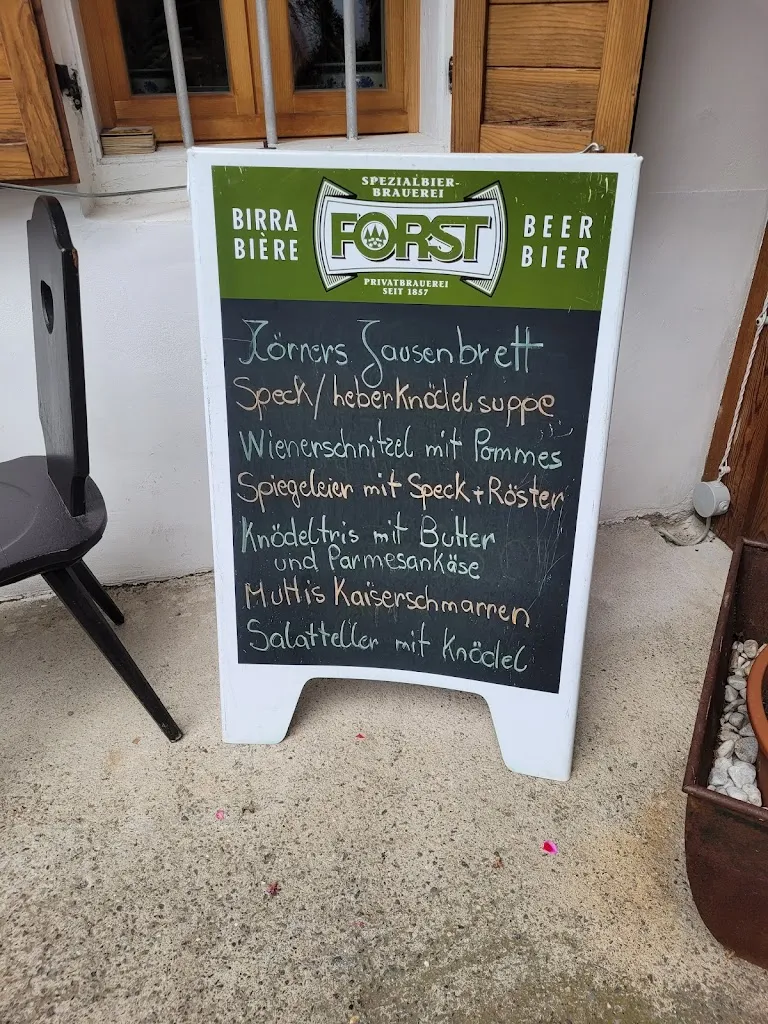 SPEZIALBIER-
BRAUEREI
BIRRA
BIÈRE
FORST
BEER
BIER
PRIVATBRAUEREI
SEIT 1857
Körners Jausenbrett
Speck/LeberKnödelsuppe
Wienerschnitzel mit Pommes
Spiegeleier mit Speck+Röster
Knödeltris mit Butter
und Parmesankäse
Muttis Kaiserschmarren
Salatteller mit Knödel